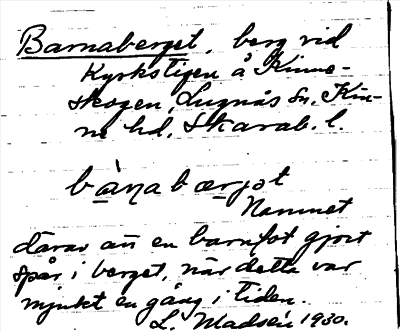 Barnaberget, berg vid
Kyrkstigen å Kinne-
skogen, Lugnås sn, Kin-
ne hd, Skarab. l.
bànabærjət
Namnet
därav att en barnfot gjort
spår i berget, när detta var
mjukt en gång i tiden.
L. Madsén 1930.